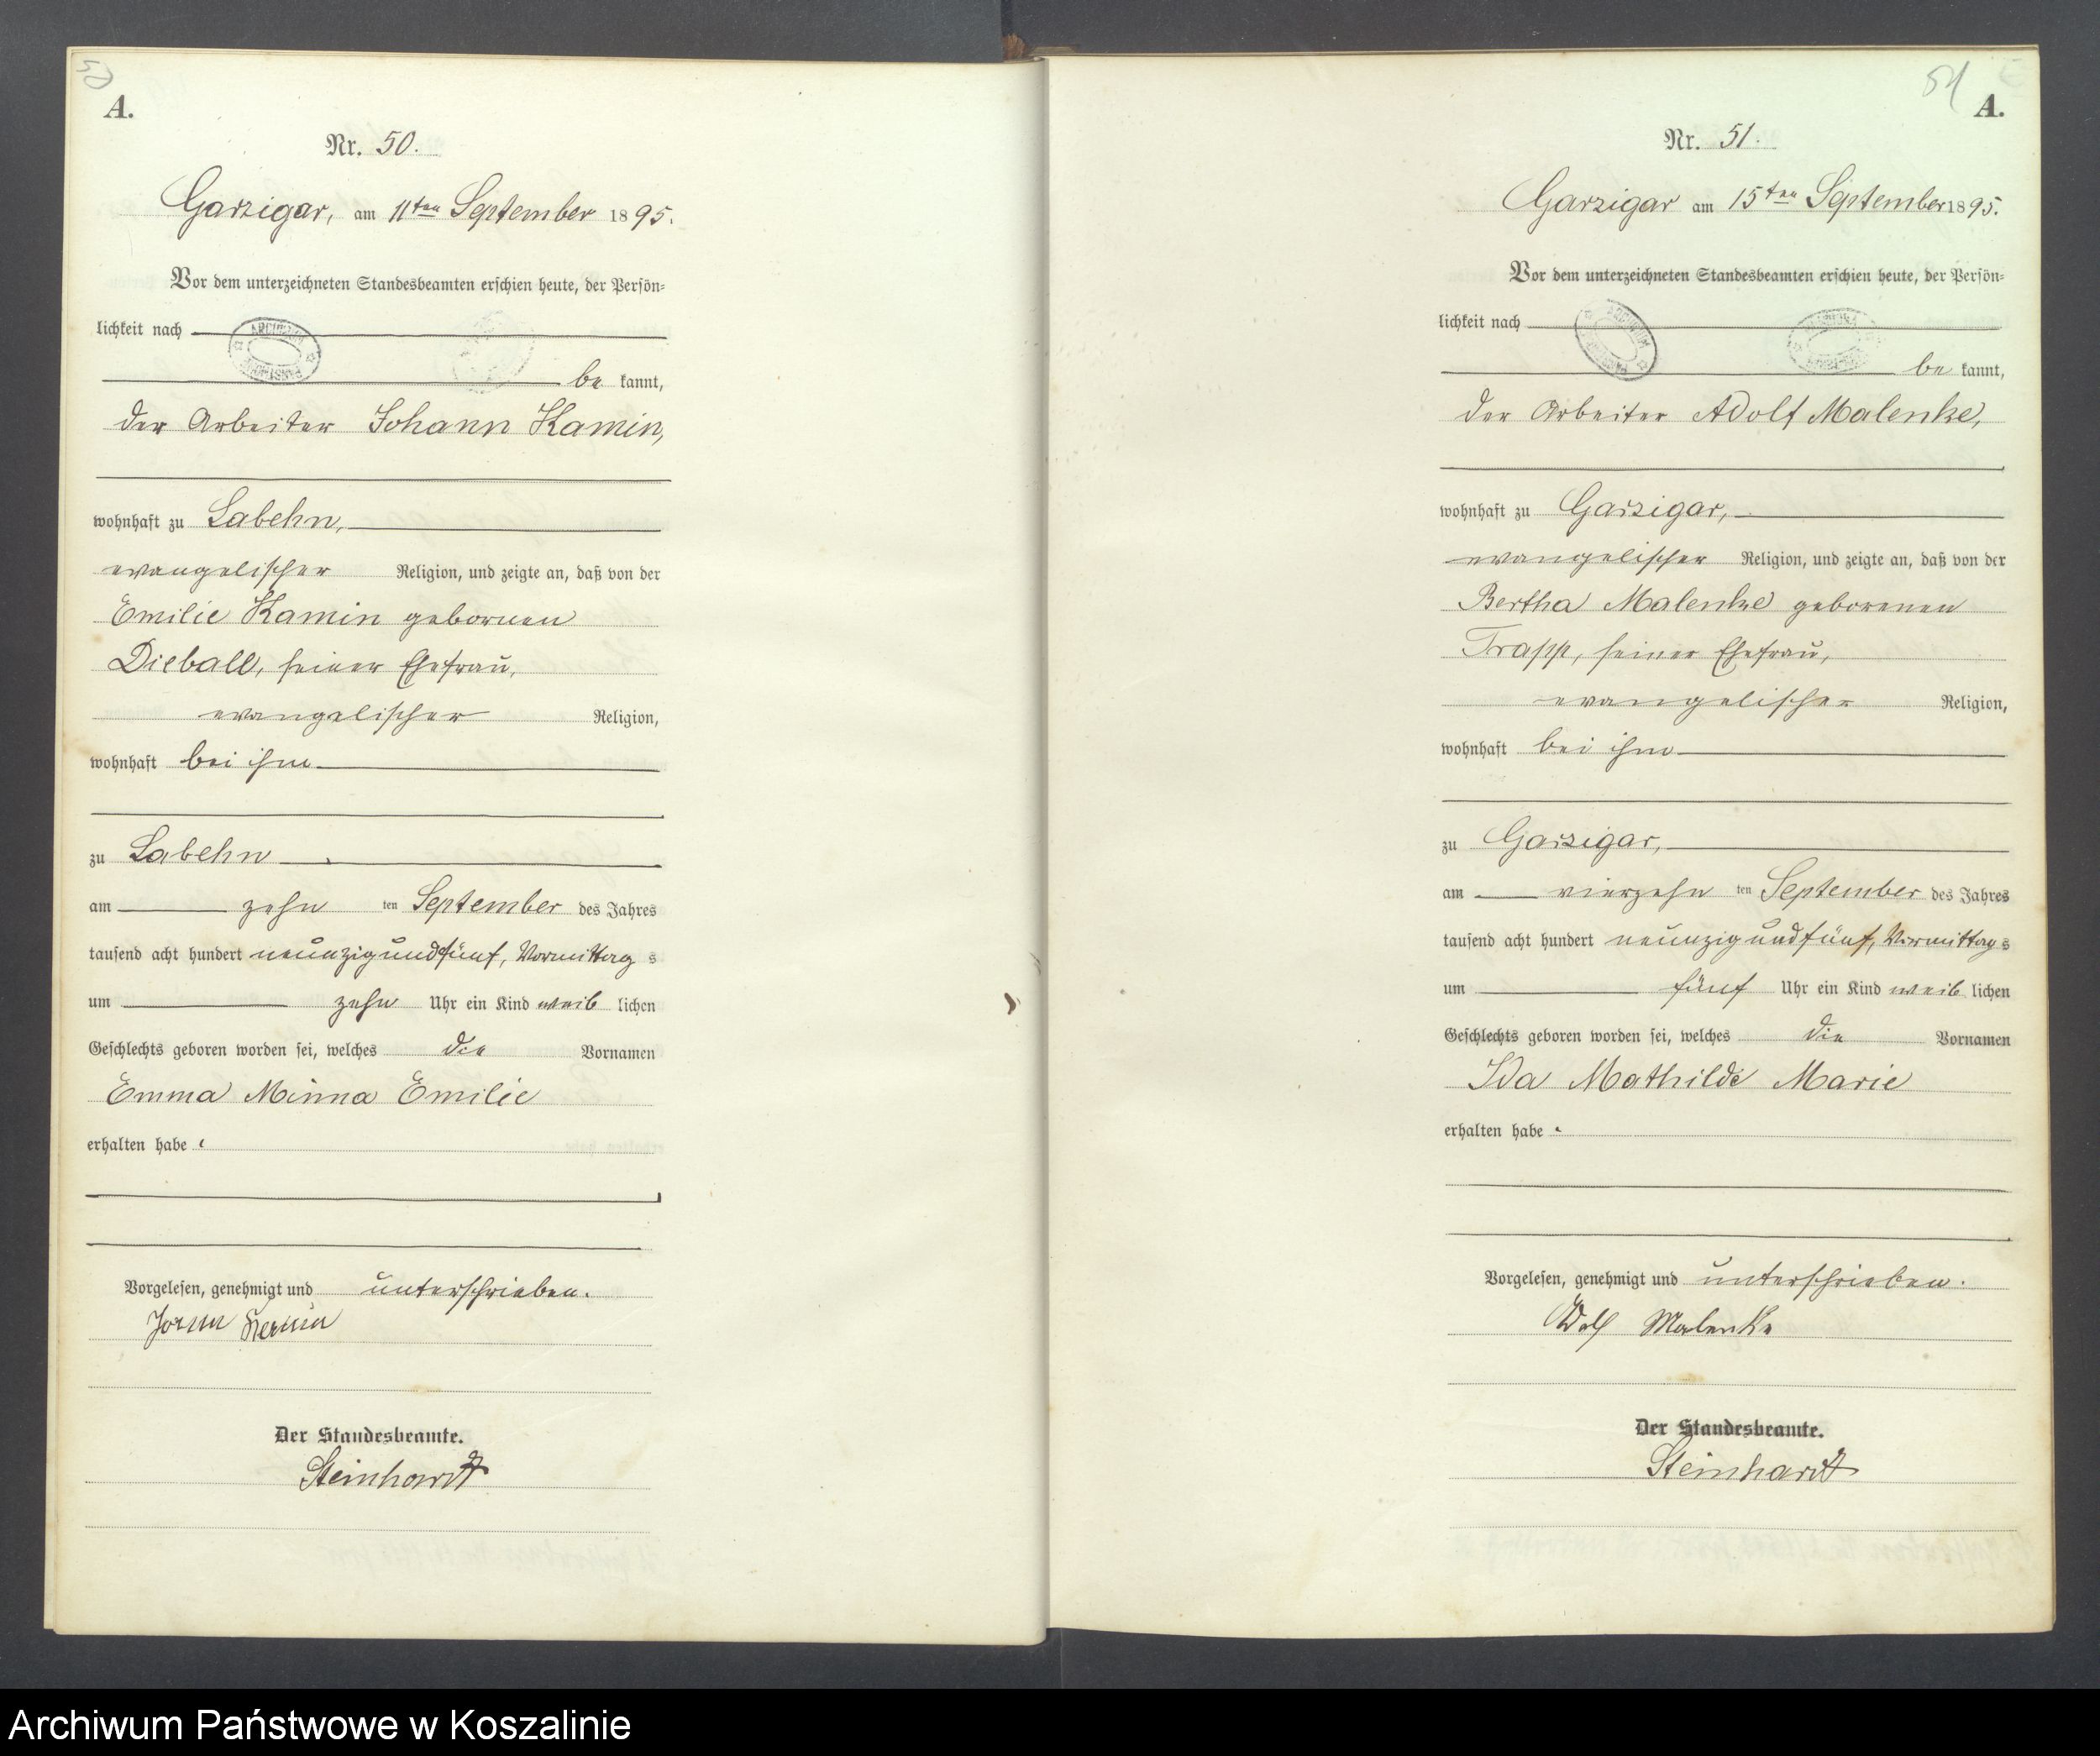 A.
Nr. 50.
Garzigar, am 11ten September 1895.
Vor dem unterzeichneten Standesbeamten erschien heute, der Persön-
lichkeit nach
ARCHIWUM PAŃSTWOWE
be kannt,
der Arbeiter Johann Kamin,
wohnhaft zu Labehn,
evangelischer Religion, und zeigte an, daß von der
Emilie Kamin gebornen
Dieball, seiner Ehefrau,
evangelischer Religion,
wohnhaft bei ihm
zu Labehn
am zehn ten September des Jahres
tausend acht hundert neunzigundfünf, Vormittag s
um zehn Uhr ein Kind weib lichen
Geschlechts geboren worden sei, welches die Vornamen
Emma Minna Emilie
erhalten habe.
Vorgelesen, genehmigt und unterschrieben.
Der Standesbeamte.
Steinhardt
51
A.
Nr. 51.
Garzigar am 15ten September 1895.
Vor dem unterzeichneten Standesbeamten erschien heute, der Persön-
lichkeit nach
ARCHIWUM PAŃSTWOWE
be kannt,
der Arbeiter Adolf Malenke,
wohnhaft zu Garzigar,
evangelischer Religion, und zeigte an, daß von der
Bertha Malenke geborenen
Trapp, seiner Ehefrau,
evangelischer Religion,
wohnhaft bei ihm
zu Garzigar,
am vierzehn ten September des Jahres
tausend acht hundert neunzigundfünf, Vormittag s
um fünf Uhr ein Kind weib lichen
Geschlechts geboren worden sei, welches die Vornamen
Ida Mathilde Marie
erhalten habe.
Vorgelesen, genehmigt und unterschrieben.
Adolf Malenke
Der Standesbeamte.
Steinhardt
Archiwum Państwowe w Koszalinie